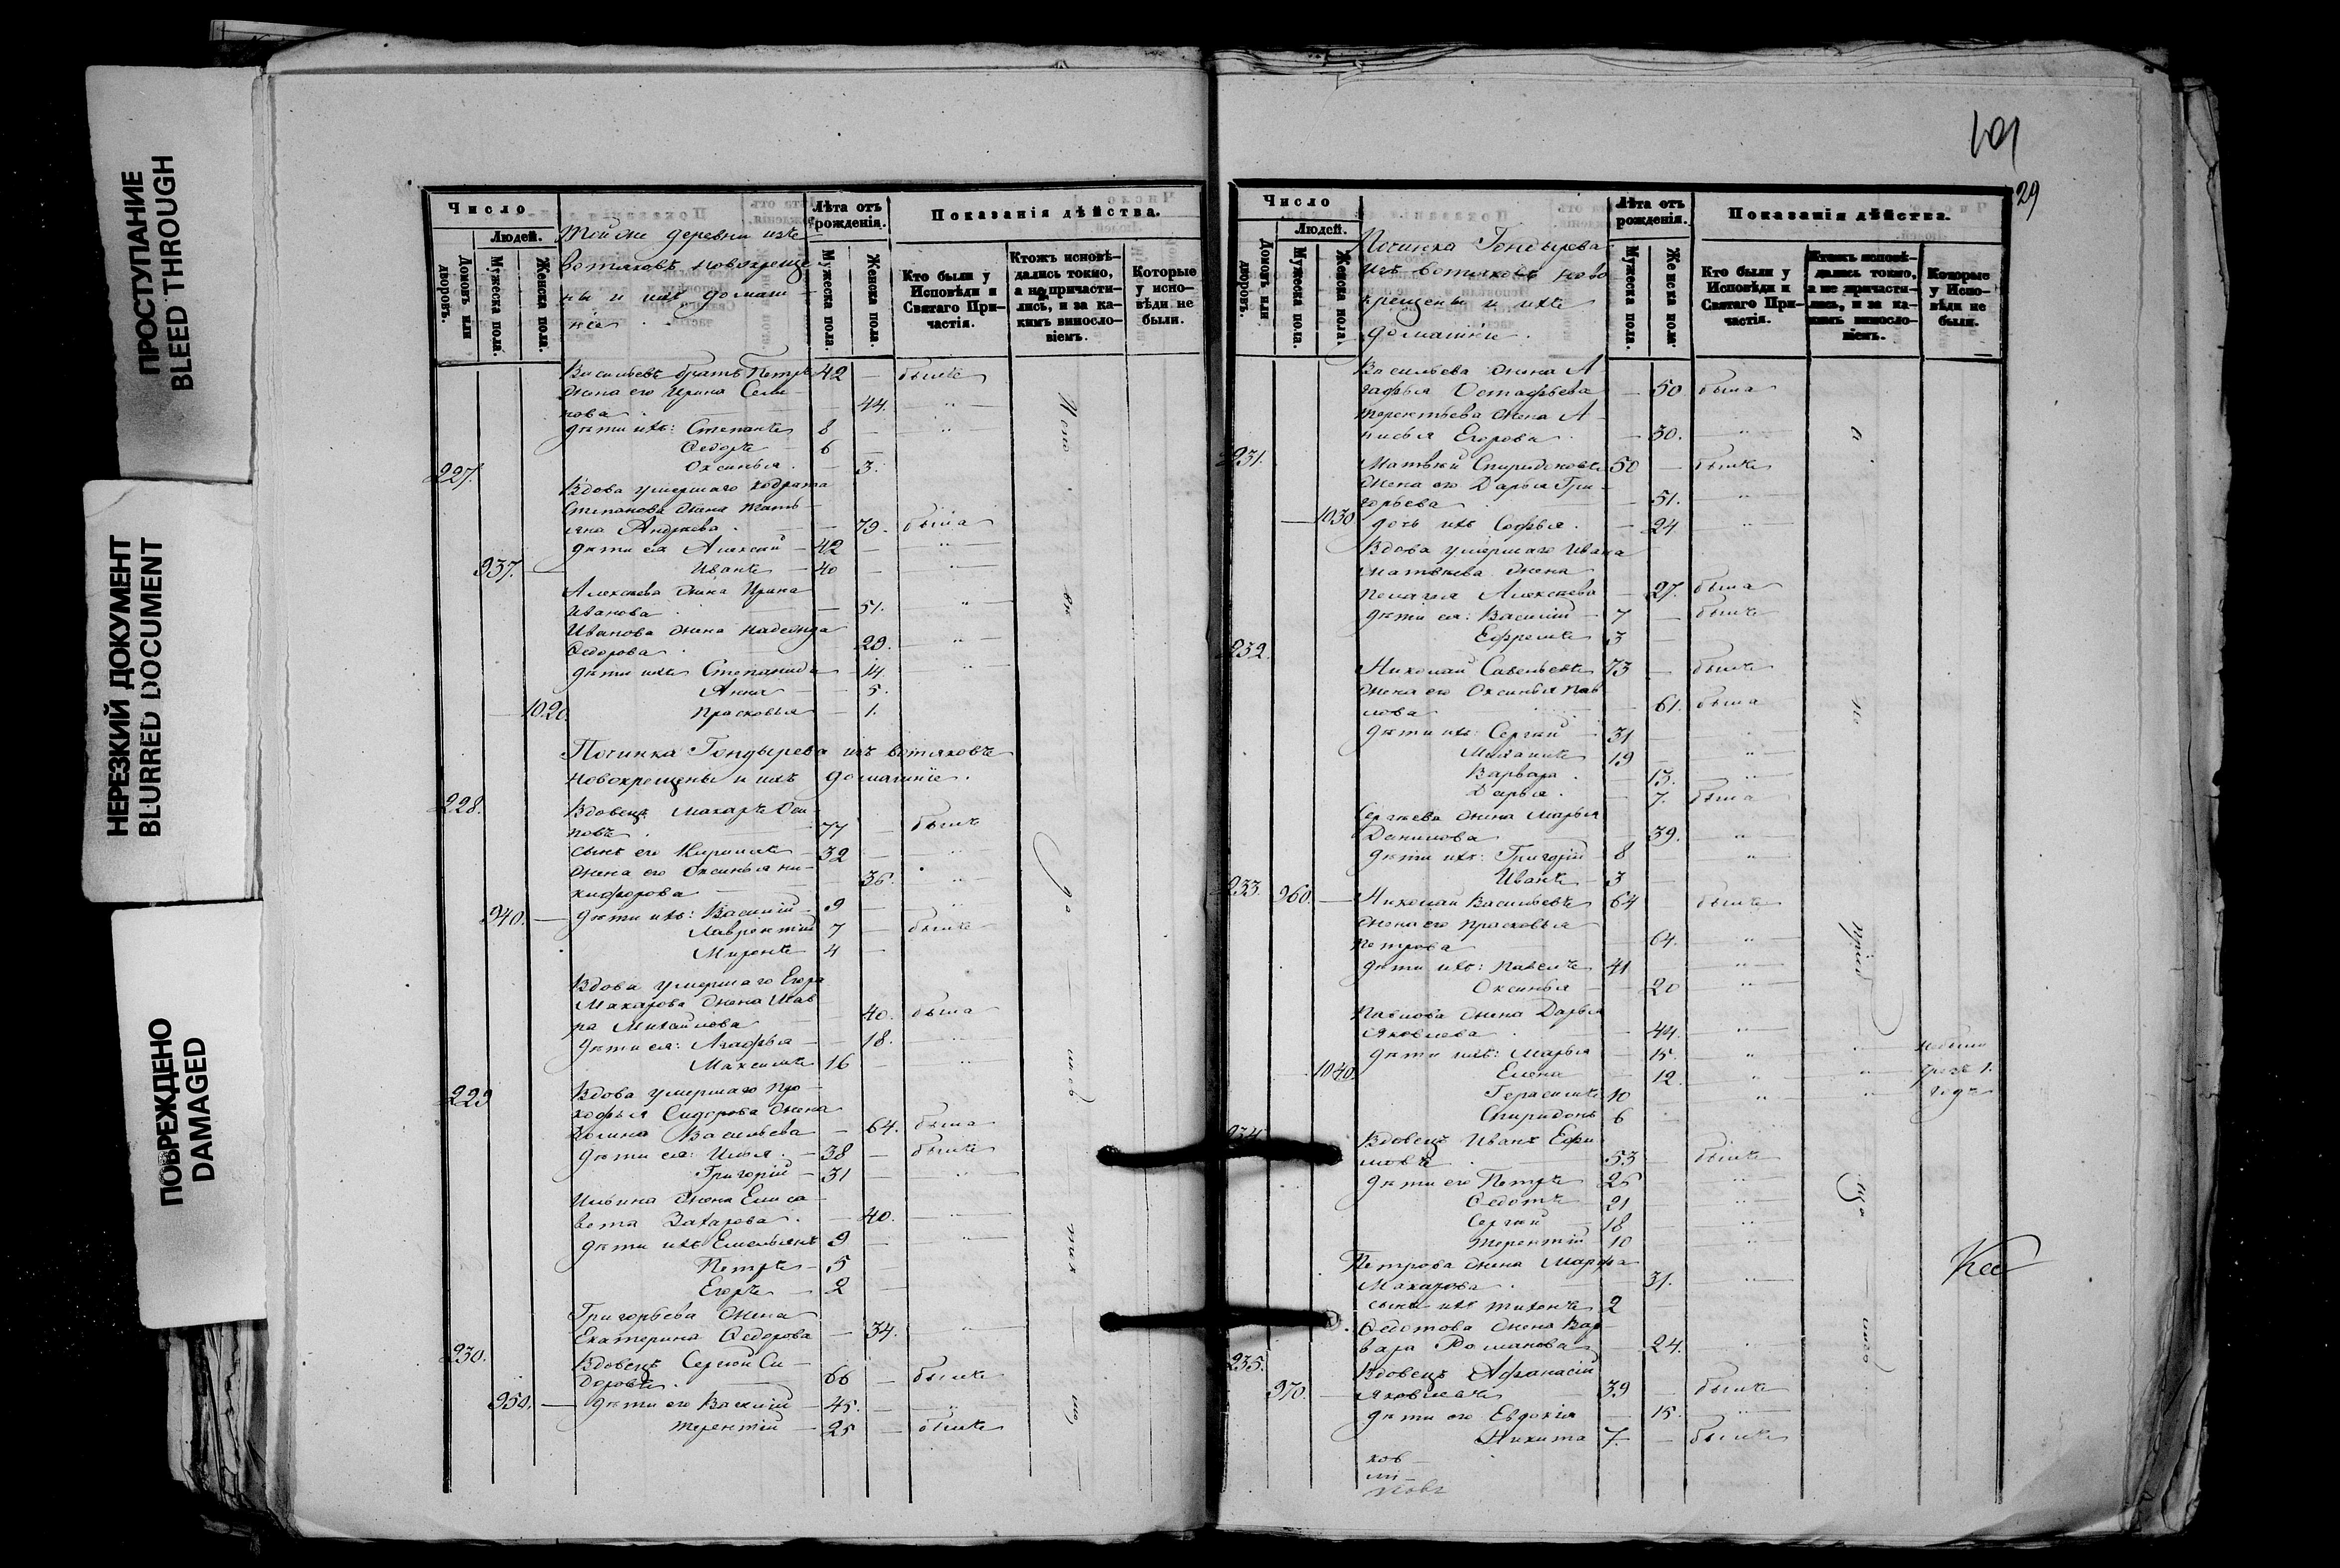 ПРОСТУПАНИЕ
BLEED THROUGH
НЕРЕЗКИЙ ДОКУМЕНТ
BLURRED DOCUMENT
ПОВРЕЖДЕНО
DAMAGED
Число
Людей.
Домовъ или дворовъ.
Мужеска пола.
Женска пола.
Той же деревни изъ
вотяковъ новокреще
ны и ихъ домаш
ніе
Лѣта отъ рожденія.
Мужеска пола.
Женска пола.
Показанія дѣйства.
Кто были у Исповѣди и Святаго Причастія.
Ктожъ исповѣдались токмо, а не причастились, и за какимъ винословіемъ.
Которые у исповѣди не были.
Васильевъ братъ Петръ 42 — былъ
жена его Ирина Семе
нова 44. "
дѣти ихъ: Степанъ 8 — "
Ѳедоръ 6 —
Оксинья — 3.
227.
Вдова умершаго Кодрата
Степанова жена Тать
яна Андреева — 79. была
дѣти ея Алексѣй 42 — "
937. Иванъ 40 — "
Алексѣева жена Ирина
Иванова — 51. "
Иванова жена Надежда
Ѳедорова — 29. "
дѣти ихъ Степанида — 14. "
Анна — 5.
1020. Прасковья — 1.
Починка Гондырева изъ вотяковъ
новокрещены и ихъ домашніе.
228. Вдовецъ Макаръ Оси
повъ 77 — былъ
сынъ его Кирилъ 32 — "
жена его Оксинья Ни
кифорова 36. "
940. — дѣти ихъ: Василій 9 — "
Лаврентій 7 — былъ
Миронъ 4 —
Вдова умершаго Егора
Макарова жена Мав
ра Михайлова 40. была
дѣти ея: Агафья — 18. "
Максимъ 16 — "
229 Вдова умершаго Про
кофья Сидорова жена
Васильева — 64. была
дѣти ея: Илья 38 — былъ
Григорій 31 — "
Ильина жена Елиса
вета Захарова — 40. "
дѣти ихъ Емельянъ 9 — "
Петръ 5 —
Егоръ 2 —
Григорьева жена
Екатерина Ѳедорова — 34. "
230. Вдовецъ Сергѣй Си
доровъ 66 — былъ
950. — дѣти его Василій 45. — "
Терентій 25 — былъ
101
29
Число
Людей.
Домовъ или дворовъ.
Мужеска пола.
Женска пола.
Починка Гондырева
изъ вотяковъ ново
крещены и ихъ
домашніе.
Лѣта отъ рожденія.
Мужеска пола.
Женска пола.
Показанія дѣйства.
Кто были у Исповѣди и Святаго Причастія.
Ктожъ исповѣдались токмо, а не причастились, и за какимъ винословіемъ.
Которые у Исповѣди не были.
Васильева жена А
гафья Остафьева — 50 была
Терентьева жена А
нисья Егорова — 30. "
231. Матвѣй Спиридоновъ 50 — былъ
жена его Дарья Гри
горьева — 51. "
— 1030 дочь ихъ Софья — 24 "
Вдова умершаго Ивана
Матвѣева жена
Пелагея Алексѣева — 27. была
дѣти ея: Василій 7 — былъ
Ефремъ 3 —
232. Николай Савельевъ 73 — былъ
жена его Оксинья Пав
лова 61. была
дѣти ихъ: Сергѣй 31 "
19 — "
Варвара — 13. "
Дарья — 7. была
Сергѣева жена Марья
Данилова 39. "
дѣти ихъ: Григорій 8 — "
Иванъ 3 —
233. 960. — Николай Васильевъ 64 былъ
жена его Прасковья
Петрова 64. "
дѣти ихъ: Павелъ 41 "
Оксинья — 20 "
Павлова жена Дарья
Яковлева — 44. "
дѣти ихъ: Марья — 15. " "
1040. Елена — 12. " "
Герасимъ 10 " "
Спиридонъ 6
234. Вдовецъ Иванъ Ефи
мовъ 53 — былъ
дѣти его Петръ 26 — "
Ѳедотъ 21 — "
Сергѣй 18 — "
Терентій 10 — "
Петрова жена Марфа
Макарова — 31. "
сынъ ихъ Тихонъ 2 —
Ѳедотова жена Вар
вара Романова 24. "
235. Вдовецъ Афанасій
970. — Яковлевъ 39 — былъ
дѣти его Евдокія — 15. "
Никита 7. — былъ